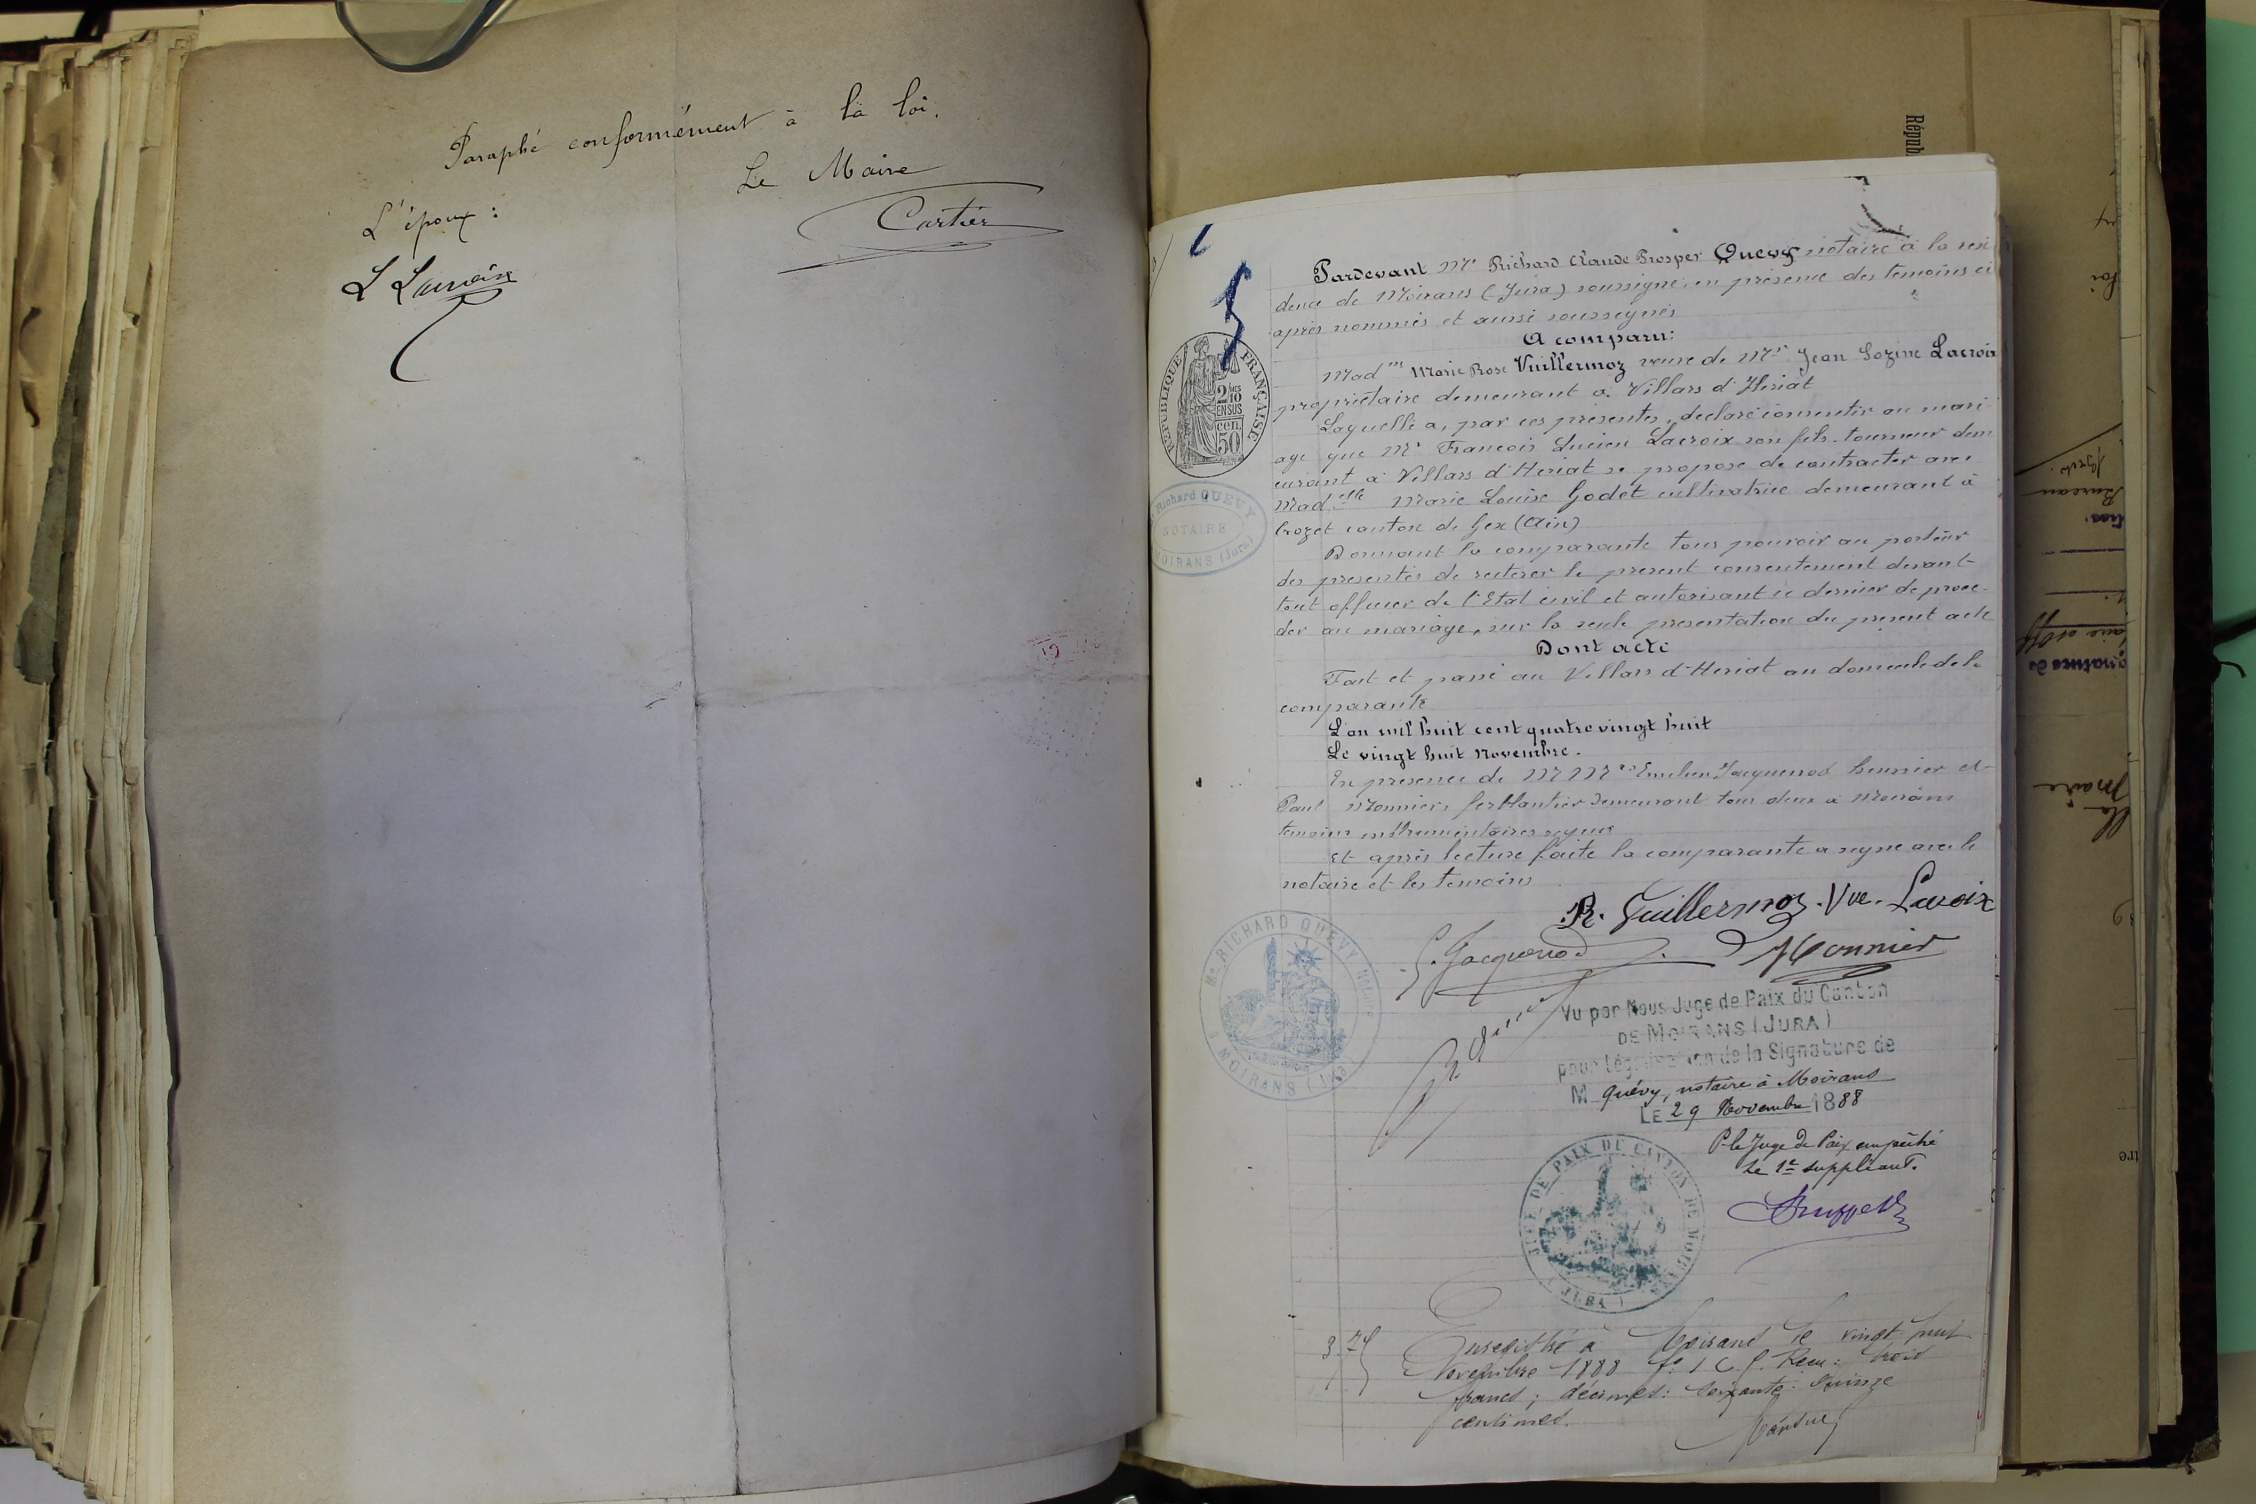 Paraphé conformément à la loi.
Le Maire
L'époux :
Cartier
L Lacroix
5
Pardevant Me Richard Claude Prosper Quevy notaire à la resi
dence de Moirans (Jura) soussigné, en présence des temoins ci
après nommés et aussi soussignés
A comparu:
Madme Marie Rose Vuillermoz veuve de Mr Jean Lacroix
propriétaire demeurant à Villars d'Heriat
Laquelle a, par ces présentes, declaré consentir au mari
age que Mr François Lucien Lacroix son fils tourneur dem
eurant à Villars d'Heriat se propose de contracter avec
Madelle Marie Louise Godet cultivatrice demeurant à
Crozet canton de Gex (Ain)
Donnant la comparante tous pouvoir au porteur
des presentes de reiterer le present consentement devant
tout officier de l'Etat civil et autorisant ce dernier de proce
der au mariage, sur la seule presentation du present acte
Dont acte
Fait et passé au Villars d'Heriat au domicile de la
comparante
L'an mil huit cent quatre vingt huit
Le vingt huit Novembre.
En presence de MMrs Emilien Jacquenod huissier et
Paul Monnier ferblantier demeurant tous deux à Moirans
temoins instrumentaires requis
Et après lecture faite la comparante a signé avec le
notaire et les temoins
REPUBLIQUE FRANÇAISE
2/10 EN SUS
50 cen.
Richard QUEVY
NOTAIRE
MOIRANS (Jura)
R. Vuillermoz. Vve. Lacroix
E. Jacquenod
Monnier
Me RICHARD QUEVY Notaire
à MOIRANS (Jura)
Vu par Nous Juge de Paix du Canton
DE MOIRANS (JURA)
pour Légalisation de la Signature de
M Quévy, notaire à Moirans
LE 29 Novembre 1888
P. le Juge de Paix empêché
Le 1er suppléant.
JUGE DE PAIX DU CANTON DE MOIRANS
(JURA)
3.75
Enregistré à Moirans le vingt huit
Novembre 1888 fo. 1 C. Reçu: trois
francs; décimes: soixante quinze
centimes.
Répub